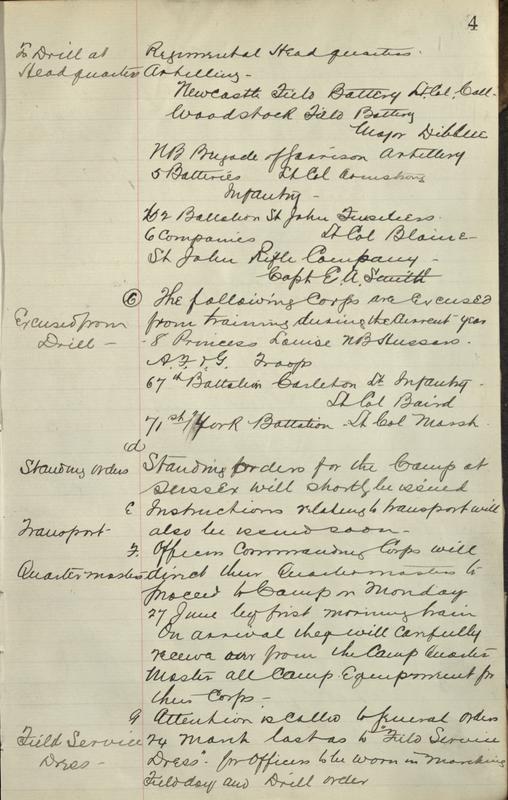 4
To Drill at
Head quarters
Regimental Head quarters.
Artillery -
Newcastle Field Battery Lt. Col. Call-
Woodstock Field Battery
Major Dibblee
NB Brigade of Garrison Artillery
5 Batteries Lt Col Armstrong
Infantry -
62 Battalion St John Fusiliers.
6 Companies Lt Col Blaine
St John Rifle Company -
Capt E. A. Smith
Excused from
Drill -
C The following Corps are Excused
from training during the current year
8 Princess Louise NB Hussars.
A. F. & G. Troops
67th Battalion Carleton Lt Infantry -
Lt Col Baird
71st York Battalion - Lt Col Marsh
Standing orders
d
Standing orders for the Camp at
Sussex will shortly be issued
Transport -
E Instructions relating to transport will
also be issued soon -
Quartermasters
F. Officers Commanding Corps will
direct their Quartermasters to
proceed to Camp on Monday
27 June by first morning train
On arrival they will carefully
receive over from the Camp Quarter
Master all Camp Equipment for
their Corps -
Field Service
Dress -
G Attention is called to General orders
24 March last as to "Field Service
Dress" - for Officers to be worn in Marching
Field day and Drill order